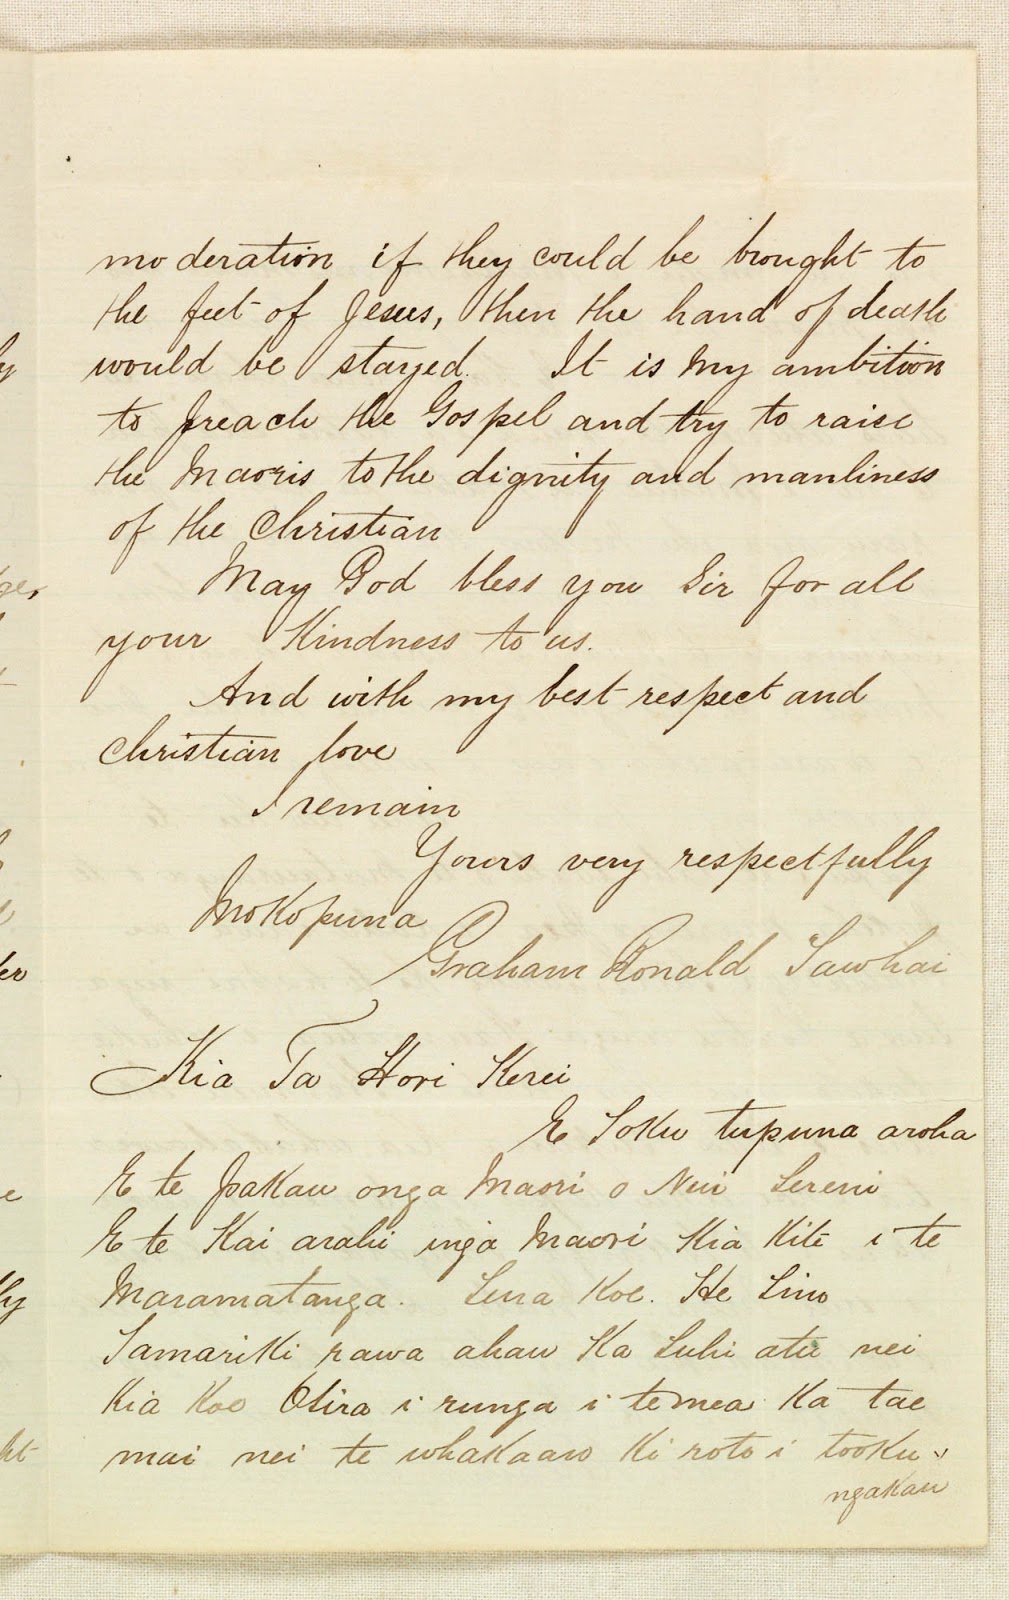 moderation if they could be brought to
the feet of Jesus, then the hand of death
would be stayed. It is my ambition
to preach the Gospel and try to raise
the Maoris to the dignity and manliness
of the Christian
May God bless you Sir for all
your Kindness to us.
And with my best respect and
Christian love
I remain
Yours very respectfully
Mokopuna
Graham Ronald Tawhai
Kia Ta Hori Kerei
E Toku tupuna aroha
E te Pakau onga Maori o Nui Tereni
E te Kai arahi inga Maori Kia Kite i te
Maramatanga. Tena Koe. He Tino
Tamariki rawa ahau Ka Tuhi atu nei
Kia Koe Otira i runga i temea Ka tae
mai nei te whakaaro Ki roto i tooku
ngakau